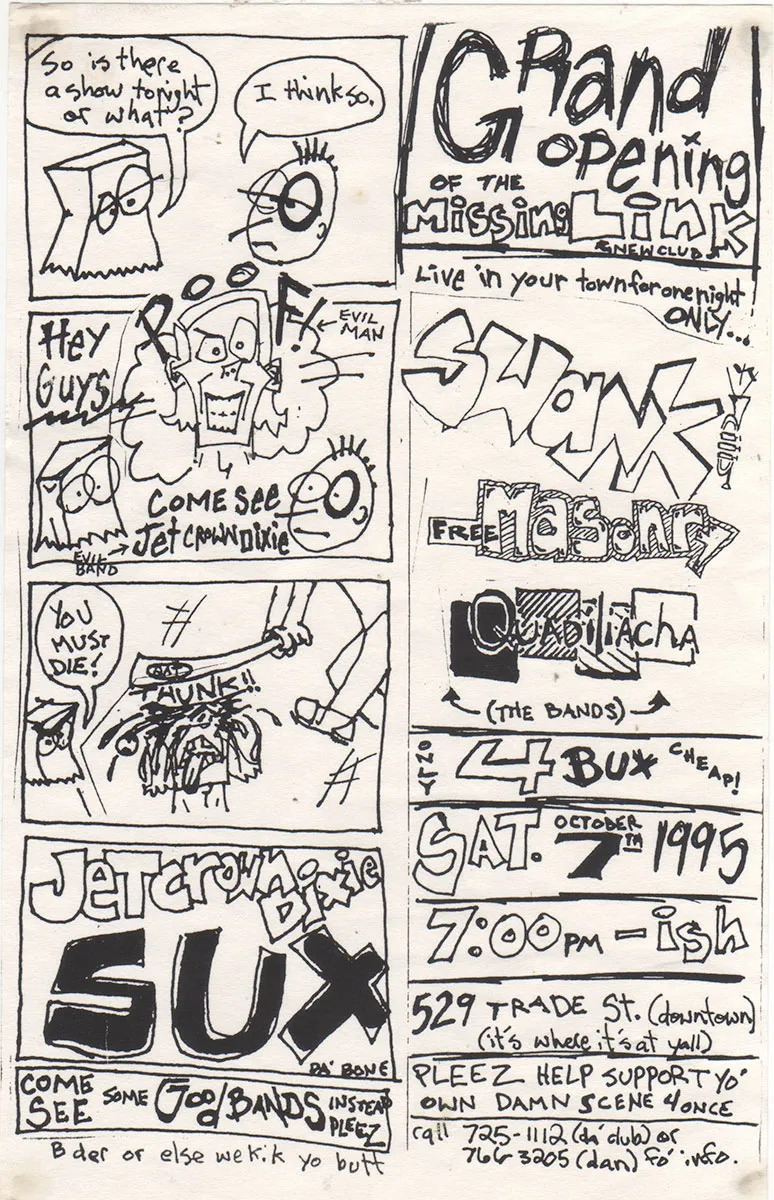 So is there
a show tonight
or what?
I think so.
POOF!
Hey
Guys
← EVIL
MAN
COME SEE
Jet CROWN Dixie
EVIL
BAND →
YOU
MUST
DIE!
THUNK!!
Jet crown
Dixie
SUX
DA' BONE
COME
SEE SOME GOOd BANDS INSTEAD
PLEEZ
B der or else we k.k yo butt
GRand
Opening
OF THE
Missing Link
NEW CLUB
Live in your town for one night
ONLY...
SWANK
FREE Masonry
QUADiliACHA
(THE BANDS)
ONLY 4 BUX CHEAP!
SAT. OCTOBER 7TH 1995
7:00 PM - ish
529 TRADE St. (downtown)
(it's where it's at yall)
PLEEZ HELP SUPPORT YO'
OWN DAMN SCENE 4 ONCE
call 725-1112 (da' club) or
766-3205 (dan) fo' info.